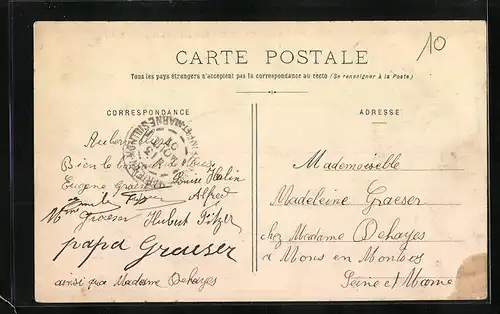 10
CARTE POSTALE
Tous les pays étrangers n'acceptent pas la correspondance au recto (Se renseigner à la Poste)
CORRESPONDANCE
Bien le
Eugène Louise
Alfred
Graeser Hubert Fitzer
papa Graeser
ainsi que Madame Dehayes
ADRESSE
Mademoiselle
Madeleine Graeser
chez Madame Dehayes
a Mons en Montois
Seine et Marne